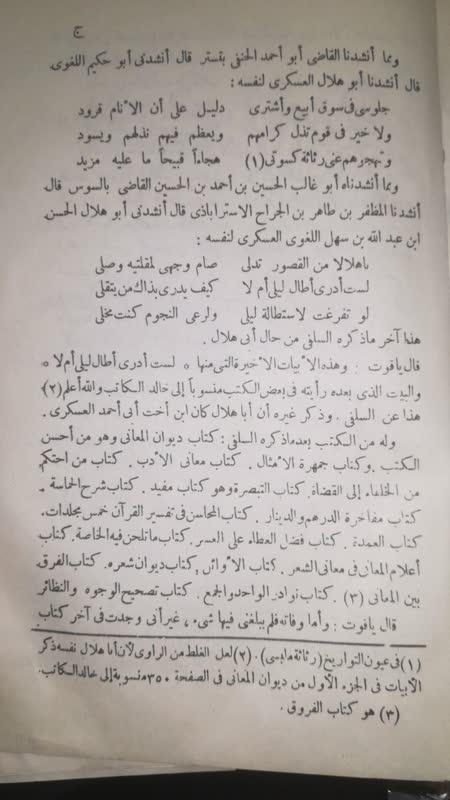 ج
ومما أنشدنا القاضي أبو أحمد الحنفي بتستر قال أنشدني أبو حكيم اللغوي
قال أنشدنا أبو هلال العسكري لنفسه :
جلوسي في سوق أبيع وأشترى دليل على أن الأنام قرود
ولا خير في قوم تذل كرامهم ويعظم فيهم نذلهم ويسود
وتهجوهم عني رثاثة كسوتي (١) هجاءاً قبيحاً ما عليه مزيد
ومما أنشدناه أبو غالب الحسين بن أحمد بن الحسين القاضي بالسوس قال
أنشدنا المظفر بن طاهر بن الجراح الاستراباذي قال أنشدني أبو هلال الحسن
ابن عبد الله بن سهل اللغوي العسكري لنفسه :
ياهلالا من القصور تدلى صام وجهي لمقلتيه وصلى
لست أدرى أطال ليلى أم لا كيف يدرى بذاك من يتقلى
لو تفرغت لاستطالة ليلى ولرعى النجوم كنت مخلى
هذا آخر ماذكره السلفي من حال أبي هلال .
قال ياقوت : وهذه الأبيات الأخيرة التي منها * لست أدرى أطال ليلى أم لا *
والبيت الذي بعده رأيته في بعض الكتب منسوباً إلى خالد الكاتب والله أعلم (٢)
هذا عن السلفي . وذكر غيره أن أبا هلال كان ابن أخت أبي أحمد العسكري .
وله من الكتب بعد ماذكره السلفي : كتاب ديوان المعاني وهو من أحسن
الكتب . وكتاب جمهرة الأمثال . كتاب معاني الأدب . كتاب من احتكم
من الخلفاء إلى القضاة . كتاب التبصرة وهو كتاب مفيد . كتاب شرح الحماسة .
كتاب مفاخرة الدرهم والدينار . كتاب المحاسن في تفسير القرآن خمس مجلدات .
كتاب العمدة . كتاب فضل العطاء على العسر . كتاب ماتلحن فيه الخاصة . كتاب
أعلام المعاني في معاني الشعر . كتاب الأوائل . كتاب ديوان شعره . كتاب الفرق
بين المعاني (٣) . كتاب نوادر الواحد والجمع . كتاب تصحيح الوجوه والنظائر
قال ياقوت : وأما وفاته فلم يبلغني فيها شيء ، غير أني وجدت في آخر كتاب
(١) في عيون التواريخ ( رثاثة ملبسي ) . (٢) لعل الغلط من الراوى لأن أبا هلال نفسه ذكر
الأبيات في الجزء الأول من ديوان المعاني في الصفحة ٣٥٠ منسوبة إلى خالد الكاتب .
(٣) هو كتاب الفروق .